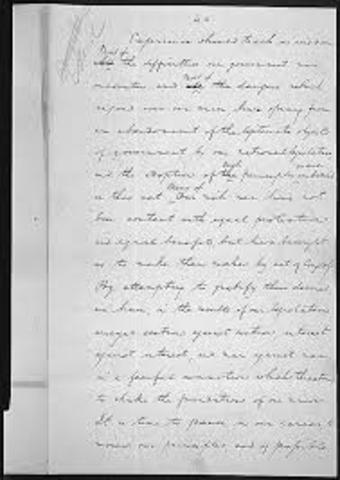 Experience should teach us wisdom
Most of
the difficulties our government now
most of
encounters and the dangers which
impend over our union have sprung from
an abandonment of the legitimate objects
of government by our national legislation
such
and the adoption of principles as are embodied
Many of
in this act. Our rich men have not
been content with equal protection
and equal benefits, but have besought
us to make them richer by act of Congress
By attempting to gratify their desires
we have, in the results of our legislation
arrayed section against section, interest
against interest, and man against man,
in a fearful commotion which threatens
to shake the foundations of our union
It is time to pause in our career to
review our principles and if possible